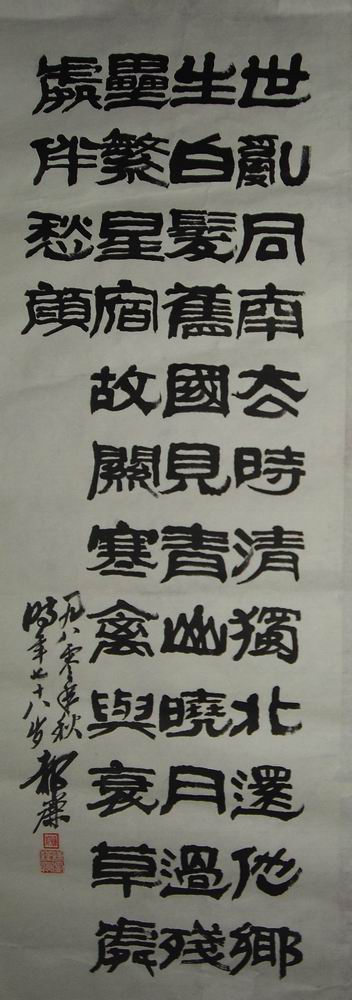 世亂同南去時清獨北還他鄉
生白髮舊國見青山曉月過殘
壘繁星宿故關寒禽與衰草處
處伴愁顏
一九八零年秋
時年七十八岁